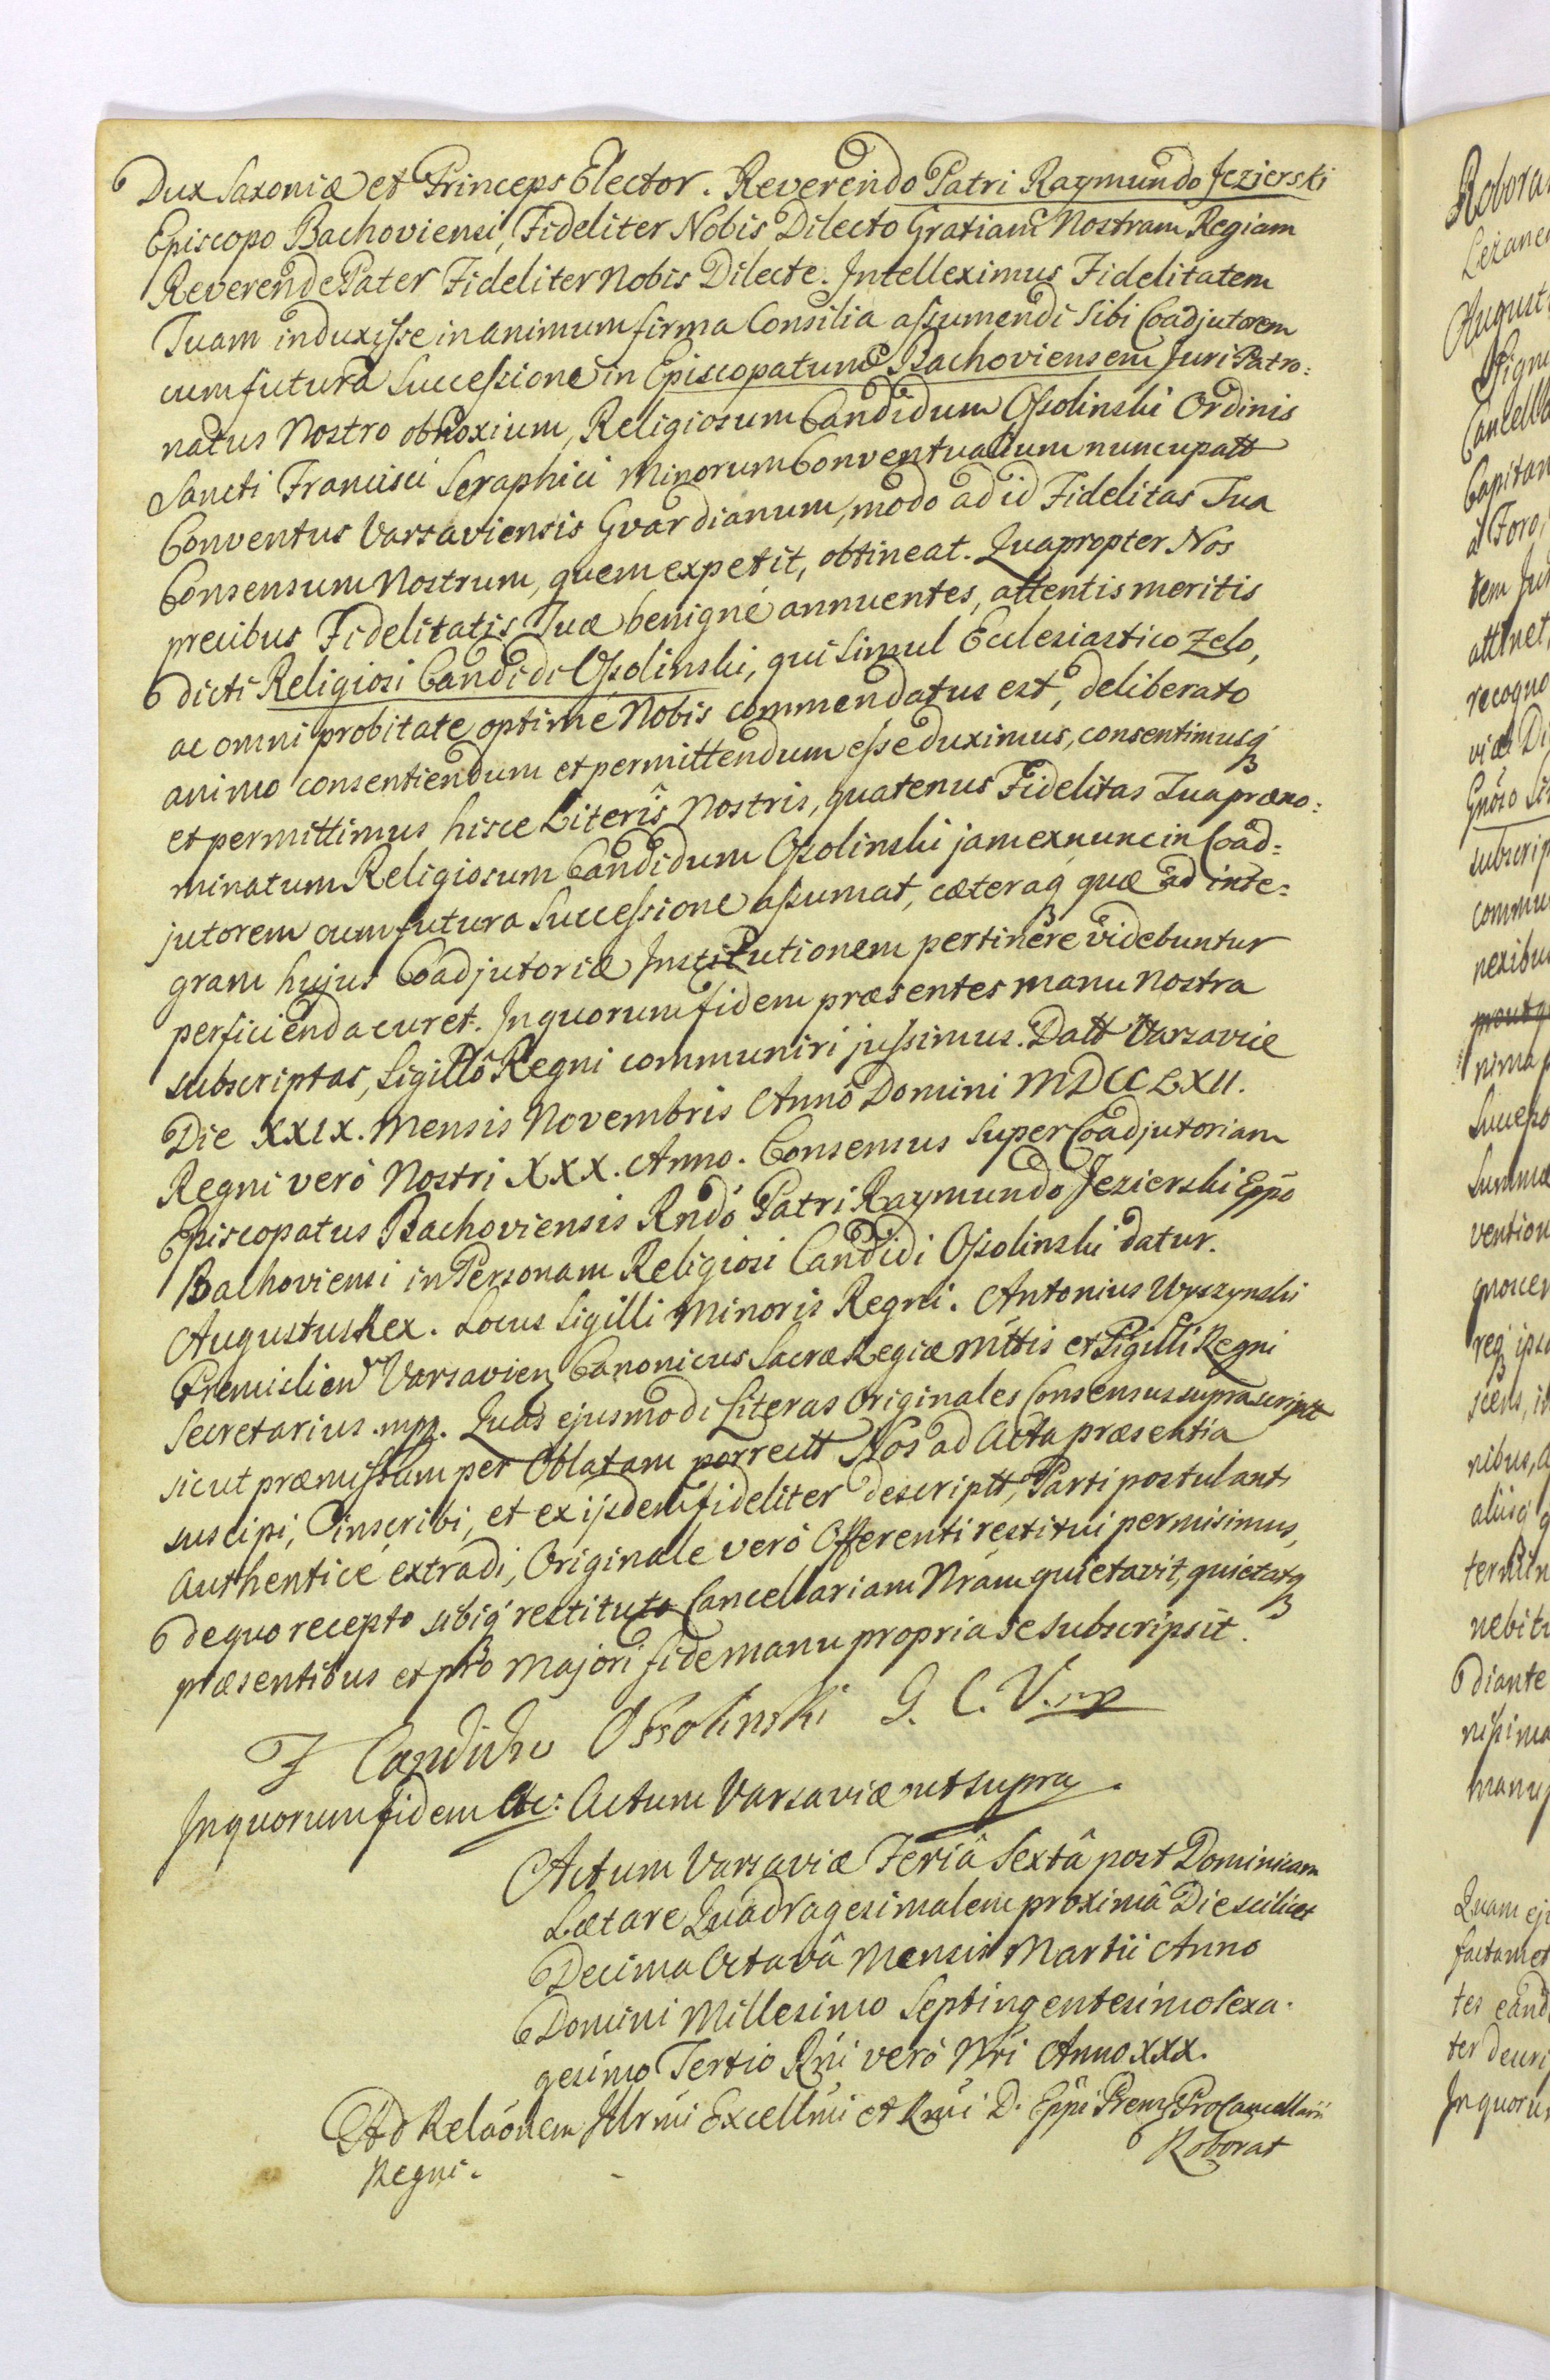 Dux Saxoniæ et Princeps Elector. Reverendo Patri Raymundo Jezierski
Episcopo Bachoviensi, Fideliter Nobis Dilecto Gratiam Nostram Regiam
Reverende Pater Fideliter Nobis Dilecte. Intelleximus Fidelitatem
Tuam induxisse in animum firma Consilia assumendi Sibi Coadjutorem
cum futura Successione in Episcopatum Bachoviensem Juri Patro:
natus Nostro obnoxium, Religiosum Candidum Ossolinski Ordinis
Sancti Francisci Seraphici Minorum Conventualium nuncupatt
Conventus Varsaviensis Gvardianum, modo ad id Fidelitas Tua
Consensum Nostrum, quem expetit, obtineat. Quapropter Nos
precibus Fidelitatis Tuæ benigné annuentes, attentis meritis
dicti Religiosi Candidi Ossolinski, qui Simul Ecclesiastico Zelo,
ac omni probitate optimé Nobis commendatus est, deliberato
animo consentiendum et permittendum esse duximus, consentimusq
et permittimus hisce Literis Nostris, quatenus Fidelitas Tua præno:
minatum Religiosum Candidum Ossolinski jam ex nunc in Coad:
jutorem cum futura Successione assumat, cæteraq quæ ad inte:
gram hujus Coadjutoriæ Institutionem pertinere videbuntur
perficienda curet. In quorum fidem præsentes manu Nostra
subscriptas, Sigillô Regni communiri jussimus. Datt Varsaviæ
Die XXIX. Mensis Novembris Annô Domini MDCCLXII.
Regni veró Nostri XXX. Anno. Consensus Super Coadjutoriam
Episcopatus Bachoviensis Rndó Patri Raymundo Jezierski Eppo
Bachoviensi in Personam Religiosi Candidi Ossolinski datur.
Augustus Rex. Locus Sigilli Minoris Regni. Antonius Wyszynski
Premislien Varsavien Canonicus Sacræ Regiæ Mttis et Sigilli Regni
Secretarius .mpp. Quas ejusmodi Literas Originales Consensus suprascriptt
sicut præmissum per Oblatam porrectt Nos ad Acta præsentia
suscipi, inscribi, et ex ijsdem fideliter descriptt, Parti postulanti
Authenticé extradi, Originale veró Offerenti restitui permisimus,
de quo recepto sibiq restituto Cancellariam Nrám quietavit, quietatq
præsentibus et pro majori fide manu propria se subscripsit.
F Candidus Ossolinski G. C. V. mp
In quorum fidem &c: Actum Varsaviæ ut supra.
Actum Varsaviæ Feriâ Sextâ post Dominicam
Lætare Quadragesimalem proximâ Die scilicet
Decima Octavâ Mensis Martii Anno
Domini Millesimo Septingentesimo Sexa.
gesimo Tertio Rni veró Nri Anno XXX.
Ad Relaónem Illrmi Excellmi et Rmi D. Eppi Prem ProCancellarii
Regni.
Roborat
Robora
Cancell
Capitan
á Foro,
attinet,
recogno
subscrip
commu
nexibus
Summæ
vention
nebit
diante
manu
Quam ej
In quoru